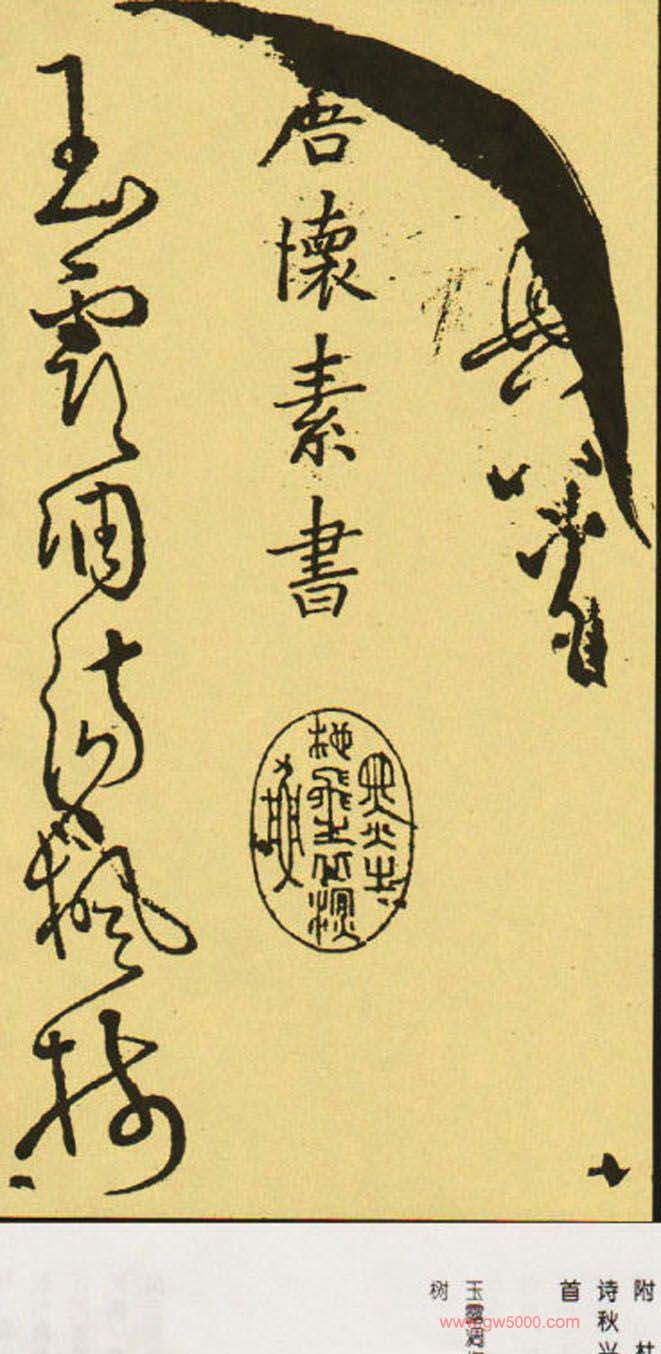 興八首
唐懷素書
玉露凋傷楓樹
附 杜
诗秋兴
首
玉露凋
树
www.gw5000.com